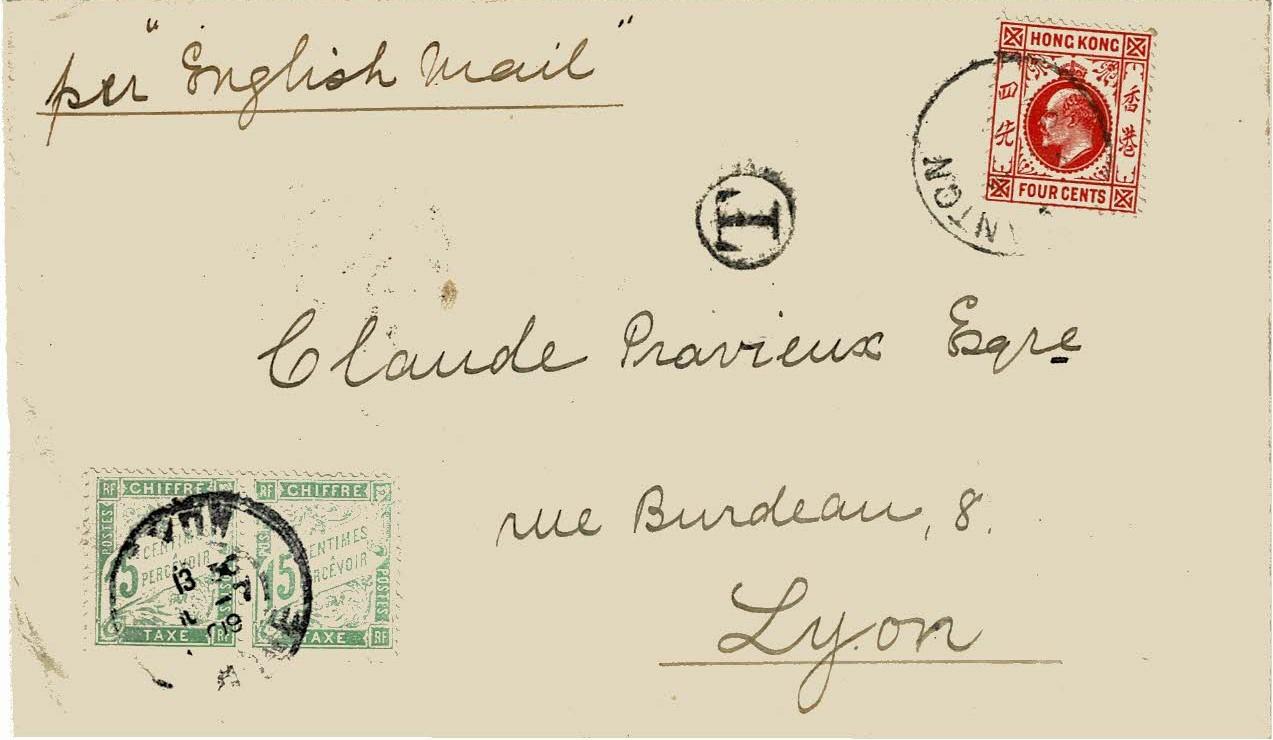 per "English Mail"
HONG KONG
四先
香港
FOUR CENTS
NTON
T
Claude Pravieux Esqre
rue Burdeau, 8.
Lyon
RF CHIFFRE
POSTES
CENTIMES
À
PERCEVOIR
15
POSTES
TAXE RF
RF CHIFFRE
POSTES
CENTIMES
À
PERCEVOIR
15
POSTES
TAXE RF
13
09